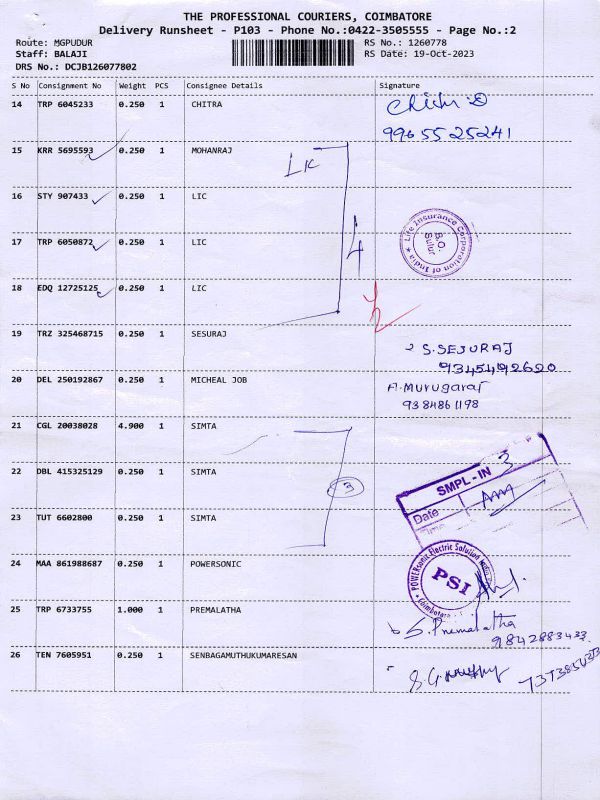 THE PROFESSIONAL COURIERS, COIMBATORE
Delivery Runsheet - P103 - Phone No.:0422-3505555 - Page No.:2
Route: MGPUDUR RS No.: 1260778
Staff: BALAJI RS Date: 19-Oct-2023
DRS No.: DCJB126077802
S No Consignment No Weight PCS Consignee Details Signature
14 TRP 6045233 0.250 1 CHITRA
9965525241
15 KRR 5695593 0.250 1 MOHANRAJ
LIC
16 STY 907433 0.250 1 LIC
17 TRP 6050872 0.250 1 LIC
4
Life Insurance Corporation of India
B.O.
Sulur
18 EDQ 12725125 0.250 1 LIC
19 TRZ 325468715 0.250 1 SESURAJ
S.SEJURAJ
9345492620
20 DEL 250192867 0.250 1 MICHEAL JOB
A.Murugaraj
9384861198
21 CGL 20038028 4.900 1 SIMTA
22 DBL 415325129 0.250 1 SIMTA
3
SMPL-IN 3
Date
Time
23 TUT 6602800 0.250 1 SIMTA
24 MAA 861988687 0.250 1 POWERSONIC
POWERsonic Electric Solution
PSI
Coimbatore
25 TRP 6733755 1.000 1 PREMALATHA
S.Premalatha
9842883433
26 TEN 7605951 0.250 1 SENBAGAMUTHUKUMARESAN